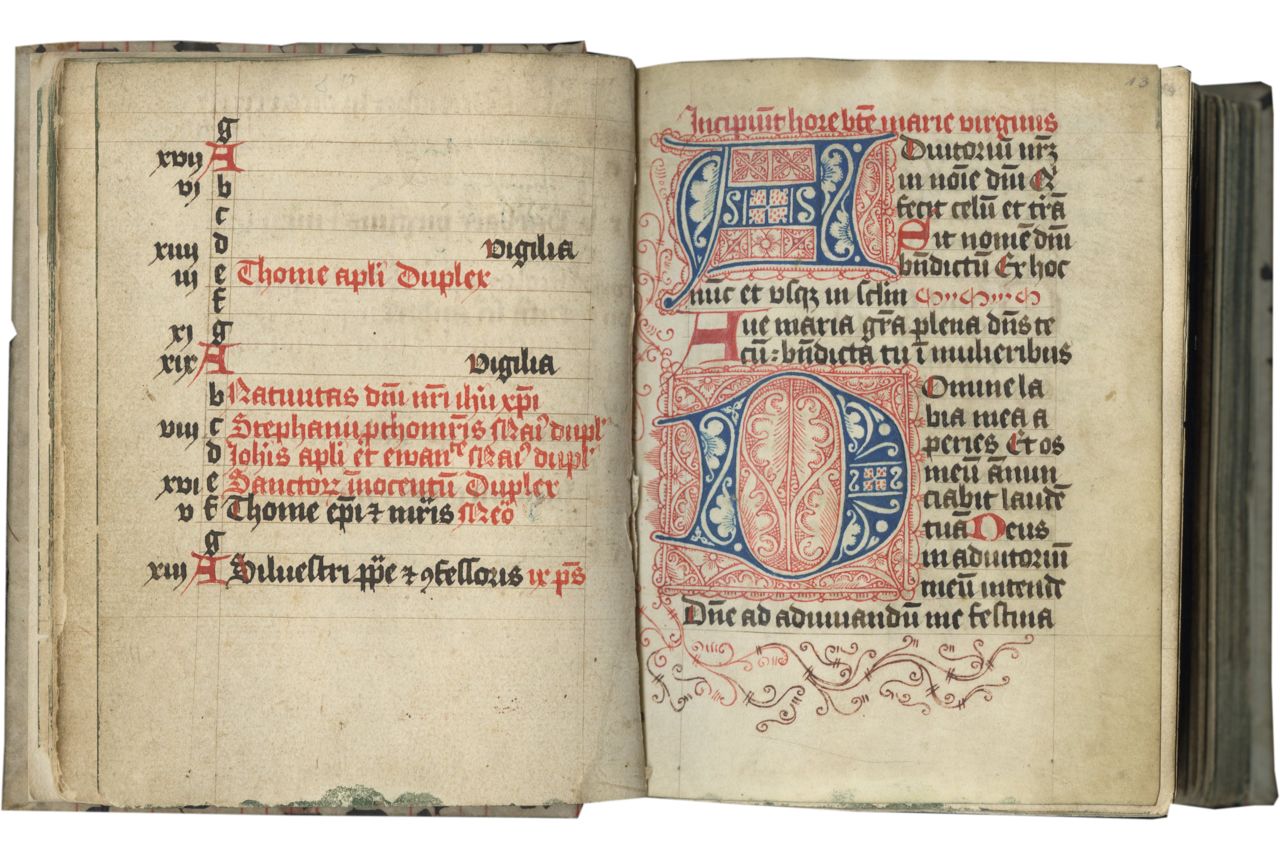 g
xvij A
vj b
c
xiiij d vigilia
iij e Thome apli Duplex
f
xj g
xix A vigilia
b Natiuitas dñi nr̄i ihū xp̄i
viij c Stephani pthomr̄is Maiꝰ dupl'
d Joh̄is apli et ewanᵗᵉ Maiꝰ dupl'
xvi e Sanctoꝝ īnocentū Duplex
v f Thome ep̄i ⁊ mr̄is Meō
g
xiij A Siluestri pp̄e ⁊ ꝯfessoris ix p̄s
13
Incipiūt hore bt̄e marie virginis
ADiutoriū nr̄ꝫ
in noīe dn̄i Q̄
fecit celū et tr̄ā
Sit nomē dn̄i
bn̄dictū Ex hoc
nūc et vsqꝫ in sclm̄
Aue maria gr̄a plena dn̄s te
cū : bn̄dicta tu ī mulieribus
DOmine la
bia mea a
peries Et os
meū ānun
ciabit laudē
tuā Deus
in adiutoriū
meū intende
Dn̄e ad adiuuandū me festina